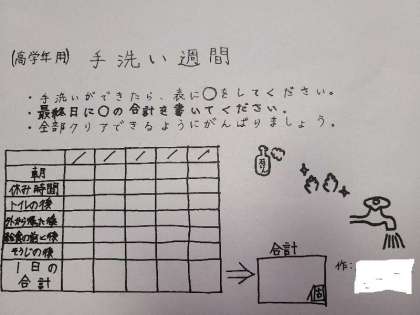 (高学年用) 手洗い週間
・手洗いができたら、表に○をしてください。
・最終日に○の合計を書いてください。
・全部クリアできるようにがんばりましょう。
/ / / / /
朝
休み時間
トイレの後
外から帰った後
給食の前と後
そうじの後
1日の合計
合計
個
作: